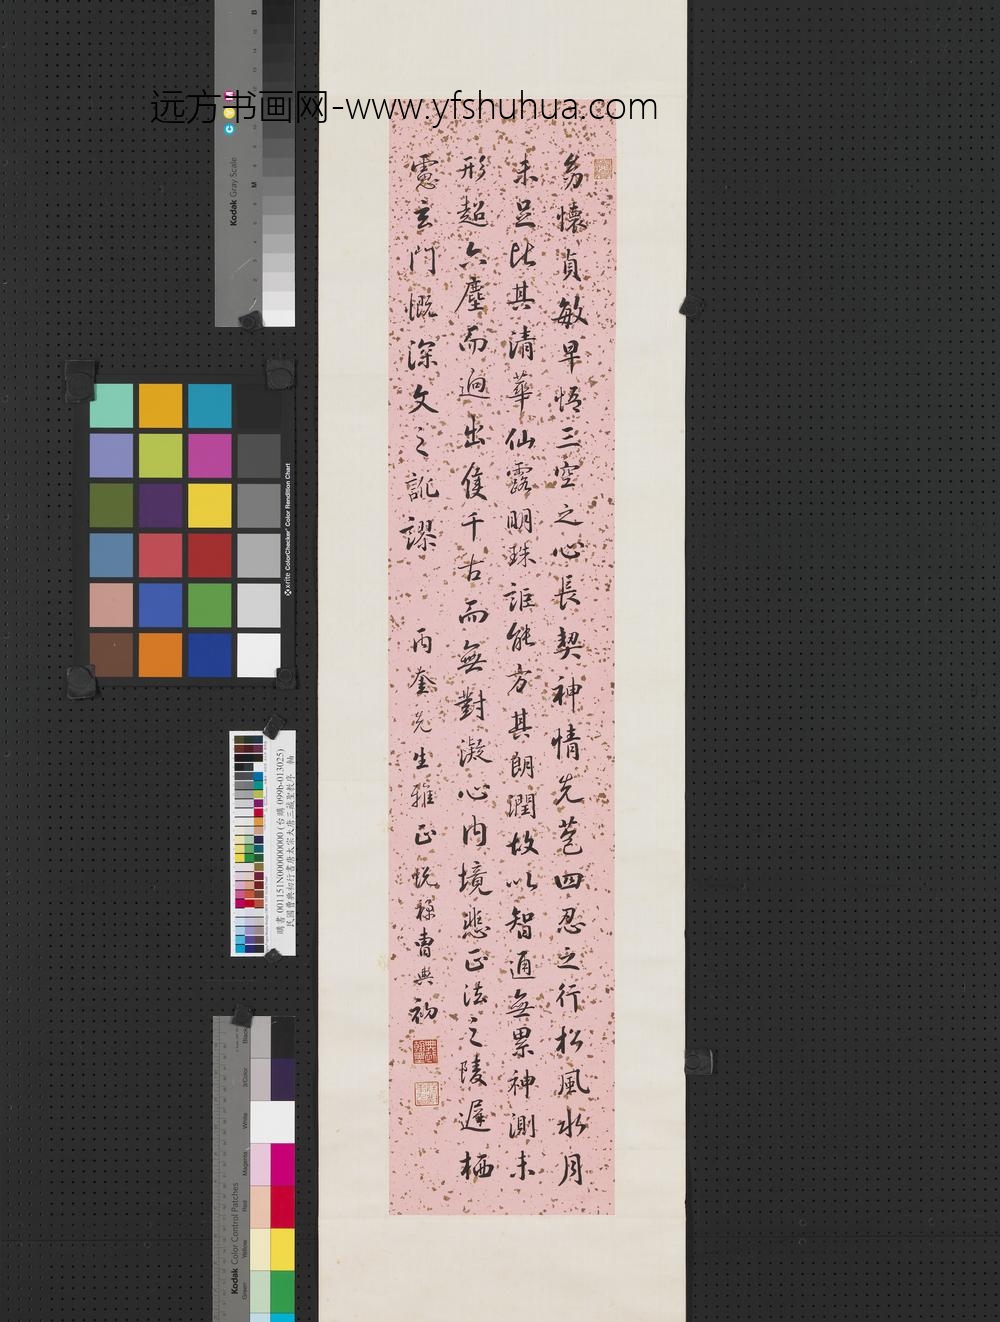 远方书画网-www.yfshuhua.com
幼懷貞敏早悟三空之心長契神情先苞四忍之行松風水月
未足比其清華仙露明珠詎能方其朗潤故以智通無累神測未
形超六塵而迥出隻千古而無對凝心內境悲正法之陵遲栖
慮玄門慨深文之訛謬
丙奎先生雅正 曹典初
Kodak Gray Scale
C
Y
M
B
M
x-rite ColorChecker Color Rendition Chart
購書 001151N000000000 (台購 099b-013025)
民國曹典初行書唐太宗大唐三藏聖教序 軸
Kodak Color Control Patches
Black
3/Color
White
Magenta
Red
Yellow
Green